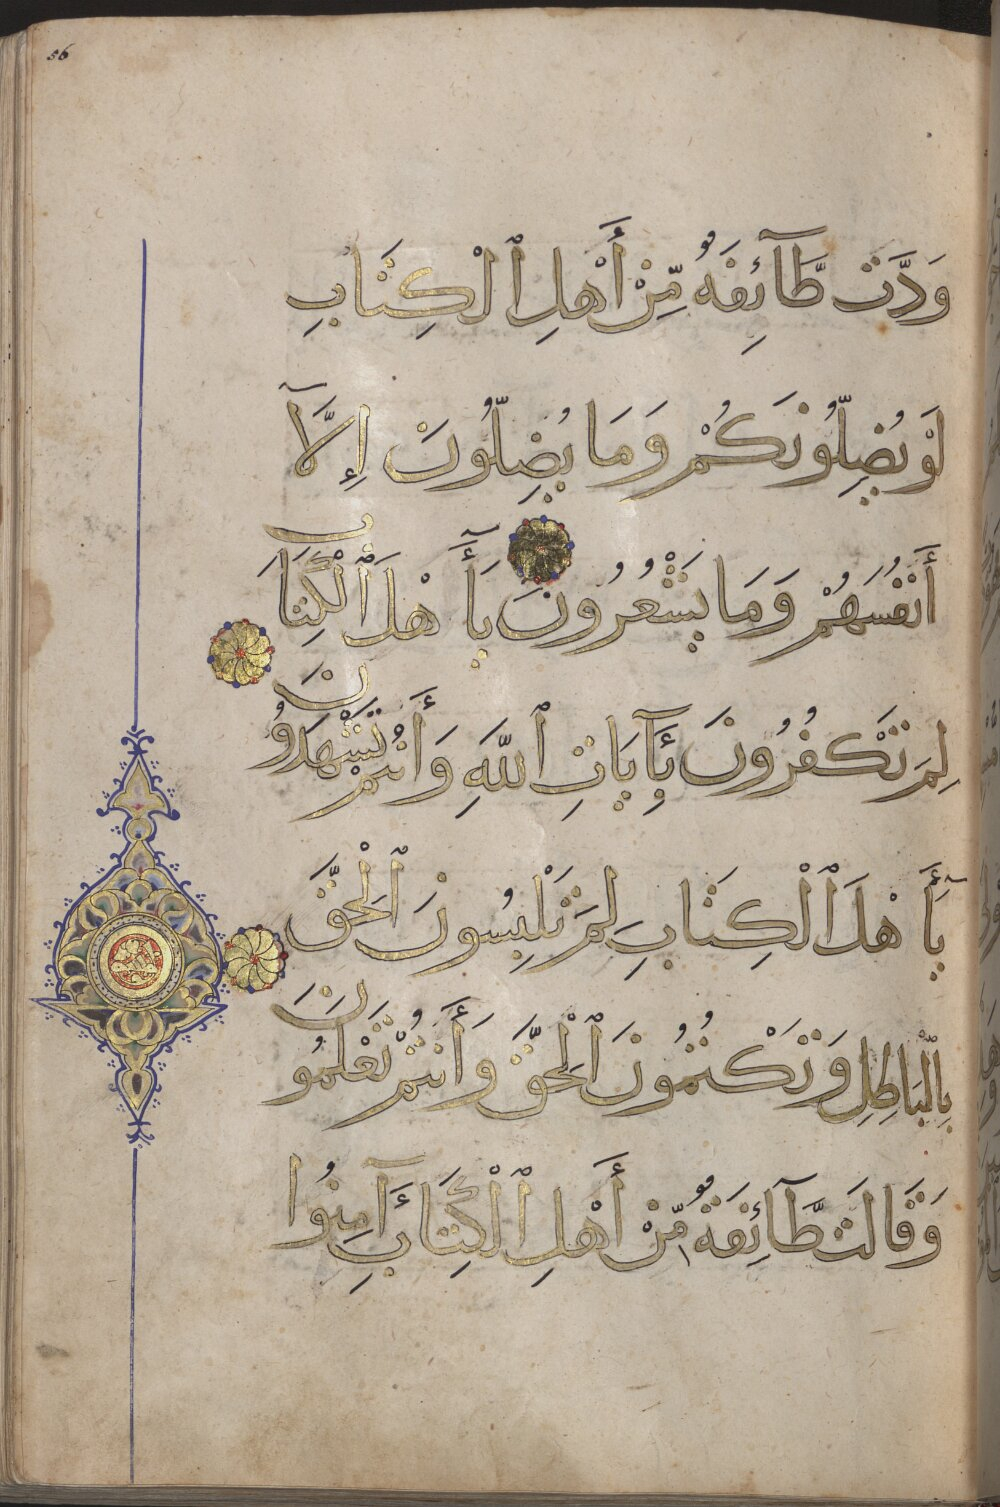 56
وَدَّت طَّآئِفَةٌ مِّنْ أَهْلِ ٱلْكِتَابِ
لَوْ يُضِلُّونَكُمْ وَمَا يُضِلُّونَ إِلَّآ
أَنفُسَهُمْ وَمَا يَشْعُرُونَ يَآأَهْلَ ٱلْكِتَابِ
لِمَ تَكْفُرُونَ بِـَٔايَاتِ ٱللَّهِ وَأَنتُمْ تَشْهَدُونَ
يَآأَهْلَ ٱلْكِتَابِ لِمَ تَلْبِسُونَ ٱلْحَقَّ
بِٱلْبَاطِلِ وَتَكْتُمُونَ ٱلْحَقَّ وَأَنتُمْ تَعْلَمُونَ
وَقَالَت طَّآئِفَةٌ مِّنْ أَهْلِ ٱلْكِتَابِ ءَامِنُوا